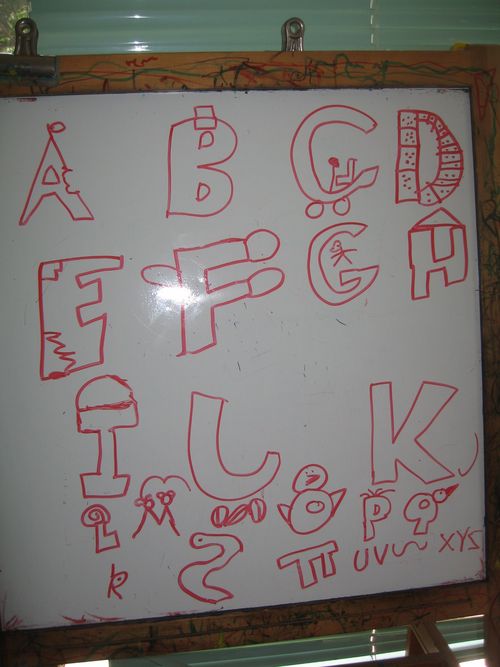 A B C D
E F G H
I J K
L M N O P q
R S T U V W X Y Z